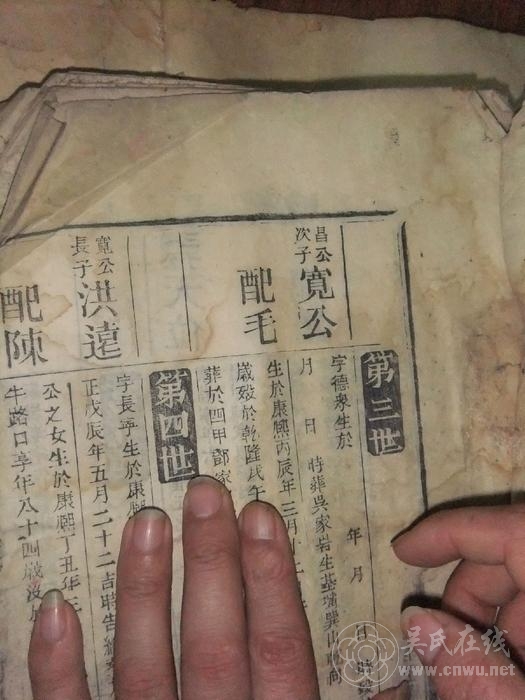 第三世
昌公
次子
寬公
字德衆生於
年月
月 日 時葬吳家岩生基埔巽山
配毛
生於康熙丙辰年三月十二
歲歿於乾隆戊午
葬於四甲鄧家
第四世
寬公
長子
洪遠
字長寧生於康熙
正戊辰年五月二十二吉時告終
配陳
公之女生於康熙丁丑年
牛路口享年八十四歲沒
吴氏在线
www.cnwu.net